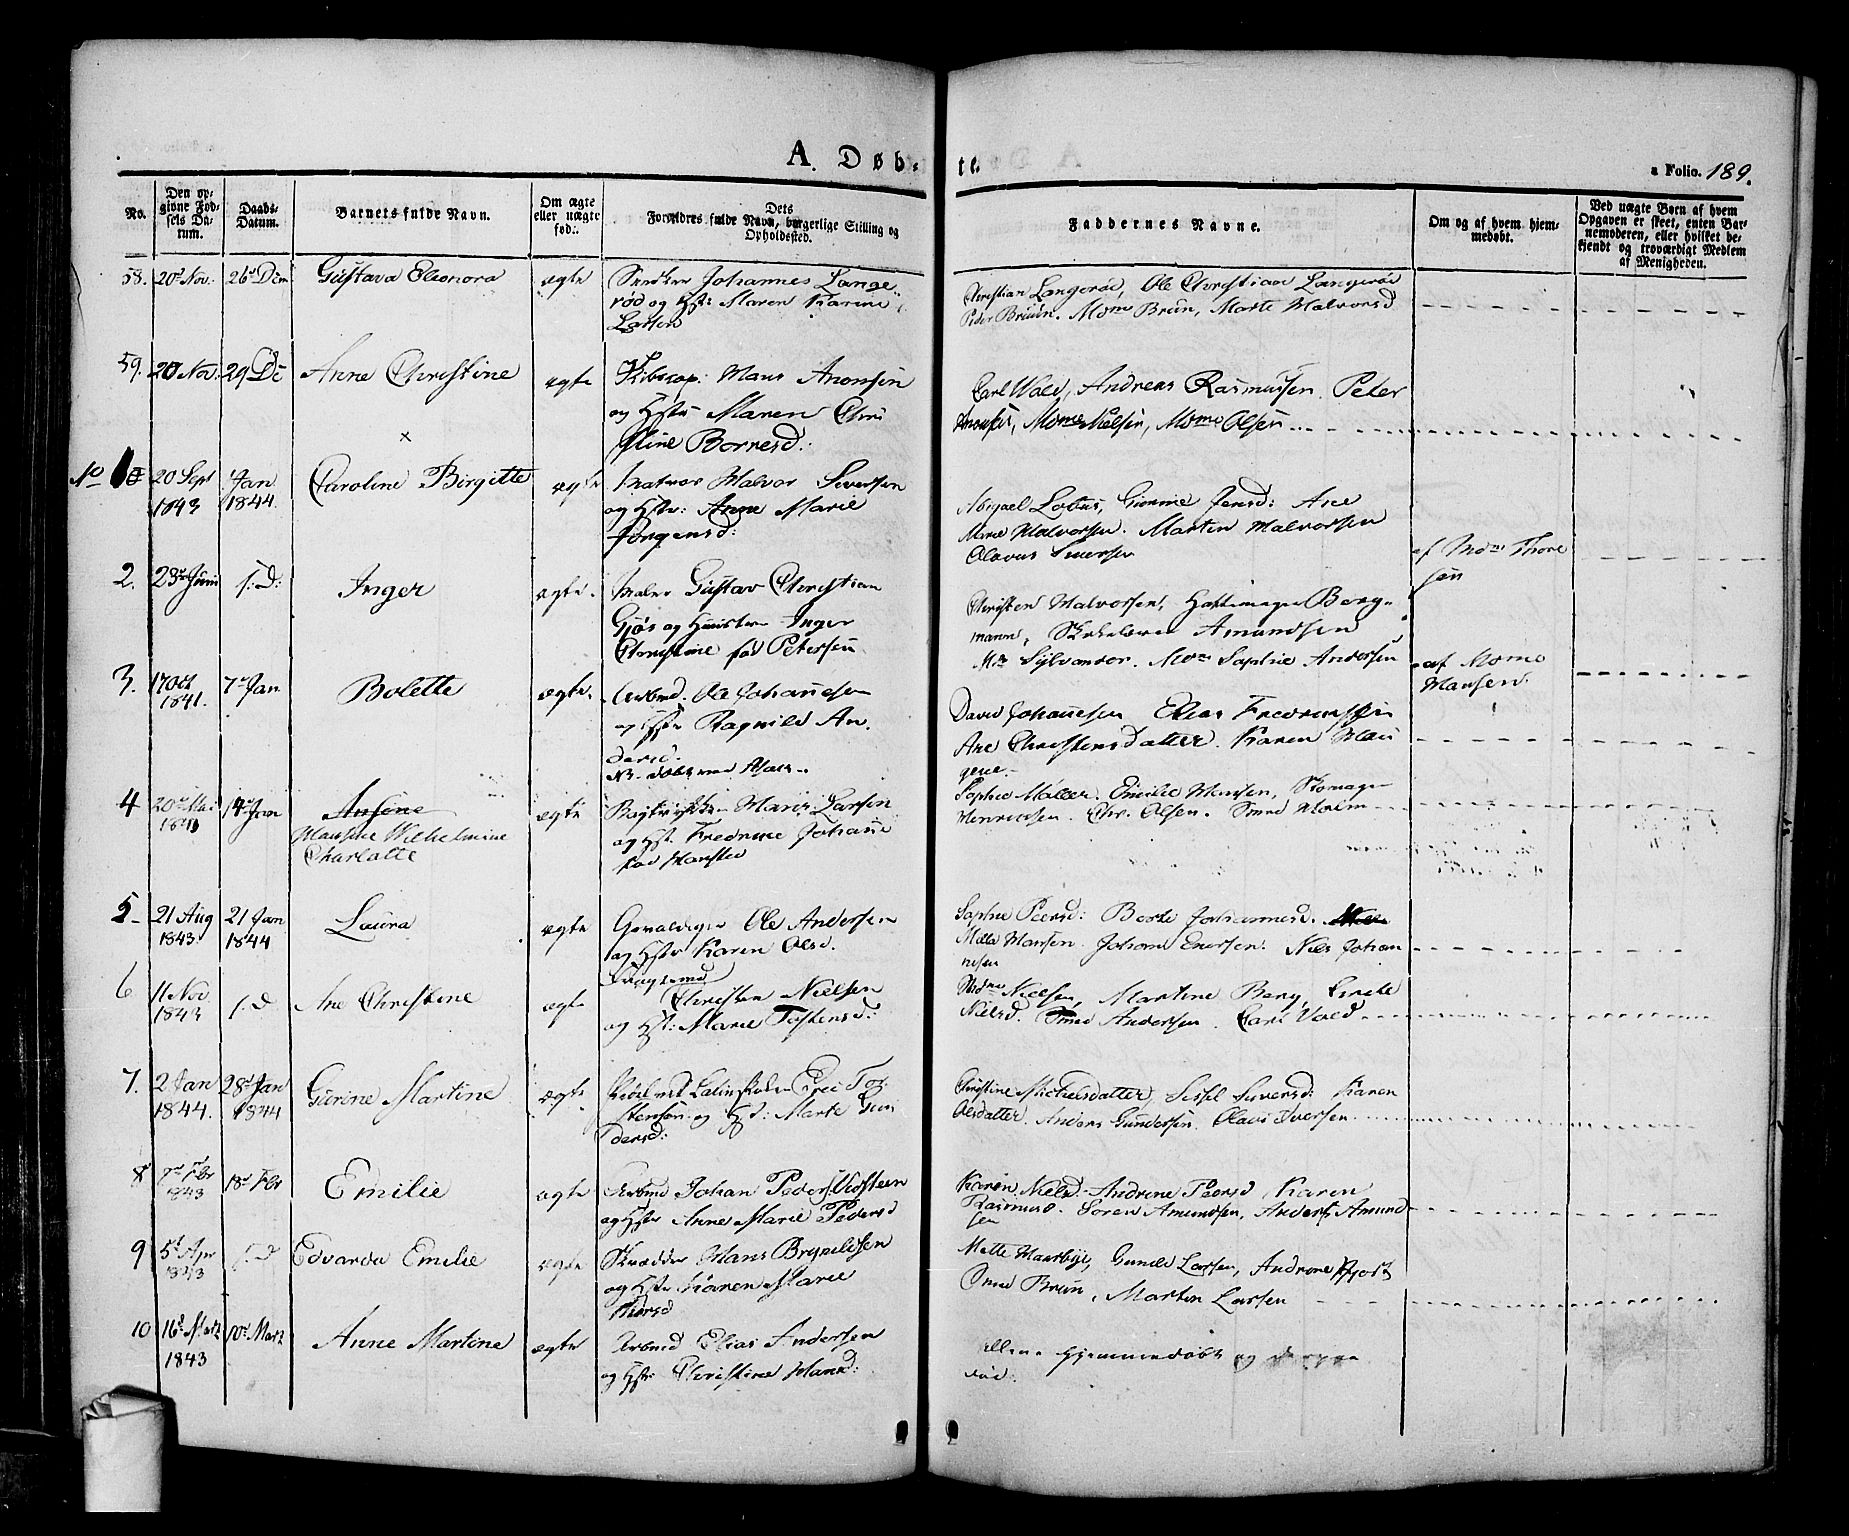 A. Døb-
te.
a Folio. 189.
No.
Den op-
givne Fød-
sels Da-
tum.
Daabs-
Datum.
Barnets fulde Navn.
Om ægte
eller uægte
fød.
Dets
Forældres fulde Navn, borgerlige Stilling og
Opholdssted.
Faddernes Navne.
Om og af hvem hjem-
medøbt.
Ved uægte Børn af hvem
Opgaven er skeet, enten Bar-
nemoderen, eller hvilket be-
kjendt og troværdigt Medlem
af Menigheden.
58. 20d Nov. 26d Dem Gustava Eleonora ægte Johannes Lange-
rød og Hst: Maren Karine
Larsen
Christian Langerød, Ole Christian Langerød
Peder Bruun. Mome Bruun, Marte Halvorsd
59. 20 Nov. 29 De Anne Christine ægte Hans Aronsen
og Hstr Maren Chri
stine Bornesd:
Carl Wold, Andreas Rasmussen, Peter
Aronsen, Mome Nielsen, Mome Olsen
No 1 20 Sept
1843
Jan
1844
Caroline Birgitte ægte Matros Halvor Siversen
og Hstr: Anne Marie
Jørgensd:
Abigael Lobus, Gimme Jensd: Ane
Marie Halvorsen. Martin Halvorsen
Olavus Siversen
af Mom Thore
sen
2. 23d Juni s: D: Inger ægte. Maler Gustav Christian
Gjøs og Hustru Inger
Christine fød Petersen
Christen Halvorsen, Hattemager Berg-
mann, Skolelærer Amundsen
Mom Sophie Andersen
af Mome
Hansen.
3. 17 Oct
1841.
7d Jan Bolette ægte. Arbmd. Ole Johannesen
og Hstr Ragnild An
dersd.
David Johannesen Elias Fredriksen
Ane Christensdatter. Karen Hau
gene
4 20d Mai
14d Jan Ansine
Hansine Wilhelmine
Charlotte
ægte Larsen
og Hst. Fredrikke Johanne
fød Hansted
Sophie Møller. Emilie Hansen, Skomager
Henriksen. Chr. Olsen. Smed Holm
5 21 Aug
1843
21 Jan
1844
Laura ægte Gevaldiger Ole Andersen
og Hstr Karen Olsd.
Sophie Peersd: Berte Johannesd.
Hansen. Johan Enersen. Niels Johan
nesen
6 11 Nov
1843
s. D Ane Christine ægte Dragsmd
Christen Nielsen
og Hst: Marie Tostensd:
Nielsen, Martine Berg,
Nielsd. Smed Andersen. Carl Vold
7. 2 Jan
1844.
28d Jan
1844
Gurine Martine ægte Tor
stensen og Hst: Marte Gun
dersd:
Christine Michelsdatter, Sissel Siversd: Karen
Olsdatter. Anders Gundersen. Olaus Iversen
8 Fbr
1843
18d Fbr Emilie ægte Arbmd Johan Peders. Vidsteen
og Hstr Anne Marie Pedersd
Karen Nielsd. Andrine Peersd Karen
Rasmusd. Søren Amundsen, Anders Amund
sen
9 5t Apr
1843
s. D Edvarda Emilie ægte Skrædder Hans Brynildsen
og Hstr Karen Marie
Mette Gunild Larsen, Andrine Hjort
Smed Bruun, Martin Larsen
10 16d Martz
1843
10d Martz Anne Martine ægte Arbmd Elias Andersen
og Hstr Christine Hansd:
hjemmedøbt og
død.